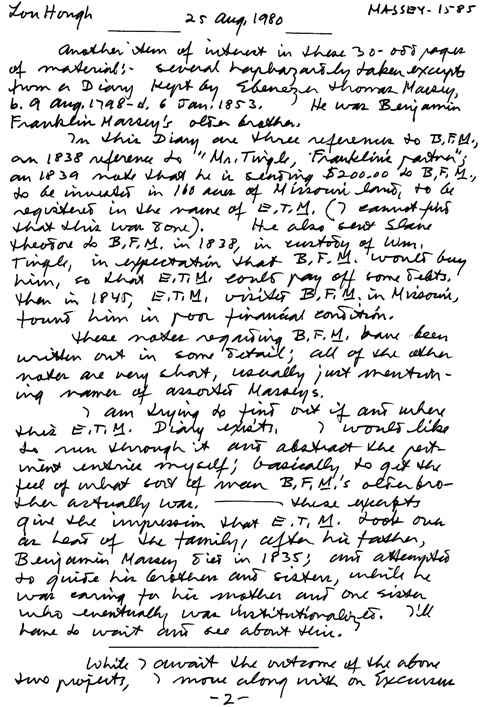 Lou Hough
25 Aug, 1980
MASSEY-1585
Another item of interest in these 30-odd pages
of material:- several haphazardly taken excerpts
from a Diary kept by Ebenezer Thomas Massey,
b. 9 Aug. 1798-d. 6 Jan. 1853. He was Benjamin
Franklin Massey's older brother.
In this Diary are three references to B.F.M.,
an 1838 reference to "Mr. Tingle, Franklin's partner";
an 1839 note that he is sending $200.00 to B.F.M.,
to be invested in 160 acres of Missouri land, to be
registered in the name of E.T.M. (I cannot find
that this was done). He also sent Slave
Theodore to B.F.M. in 1838, in custody of Wm.
Tingle, in expectation that B.F.M. would buy
him, so that E.T.M. could pay off some debts.
Then in 1845, E.T.M. visited B.F.M. in Missouri,
found him in poor financial condition.
These notes regarding B.F.M. have been
written out in some detail; all of the other
notes are very short, usually just mention-
ing names of assorted Masseys.
I am trying to find out if and where
this E.T.M. Diary exists. I would like
to run through it and abstract the pert-
inent entries myself; basically to get the
feel of what sort of man B.F.M.'s older bro-
ther actually was. These excerpts
give the impression that E.T.M. took over
as head of the family, after his father,
Benjamin Massey died in 1835; and attempted
to guide his brothers and sisters, while he
was caring for his mother and one sister
who eventually was institutionalized. I'll
have to wait and see about this.
While I await the outcome of the above
two projects, I move along with on Excursus
-2-